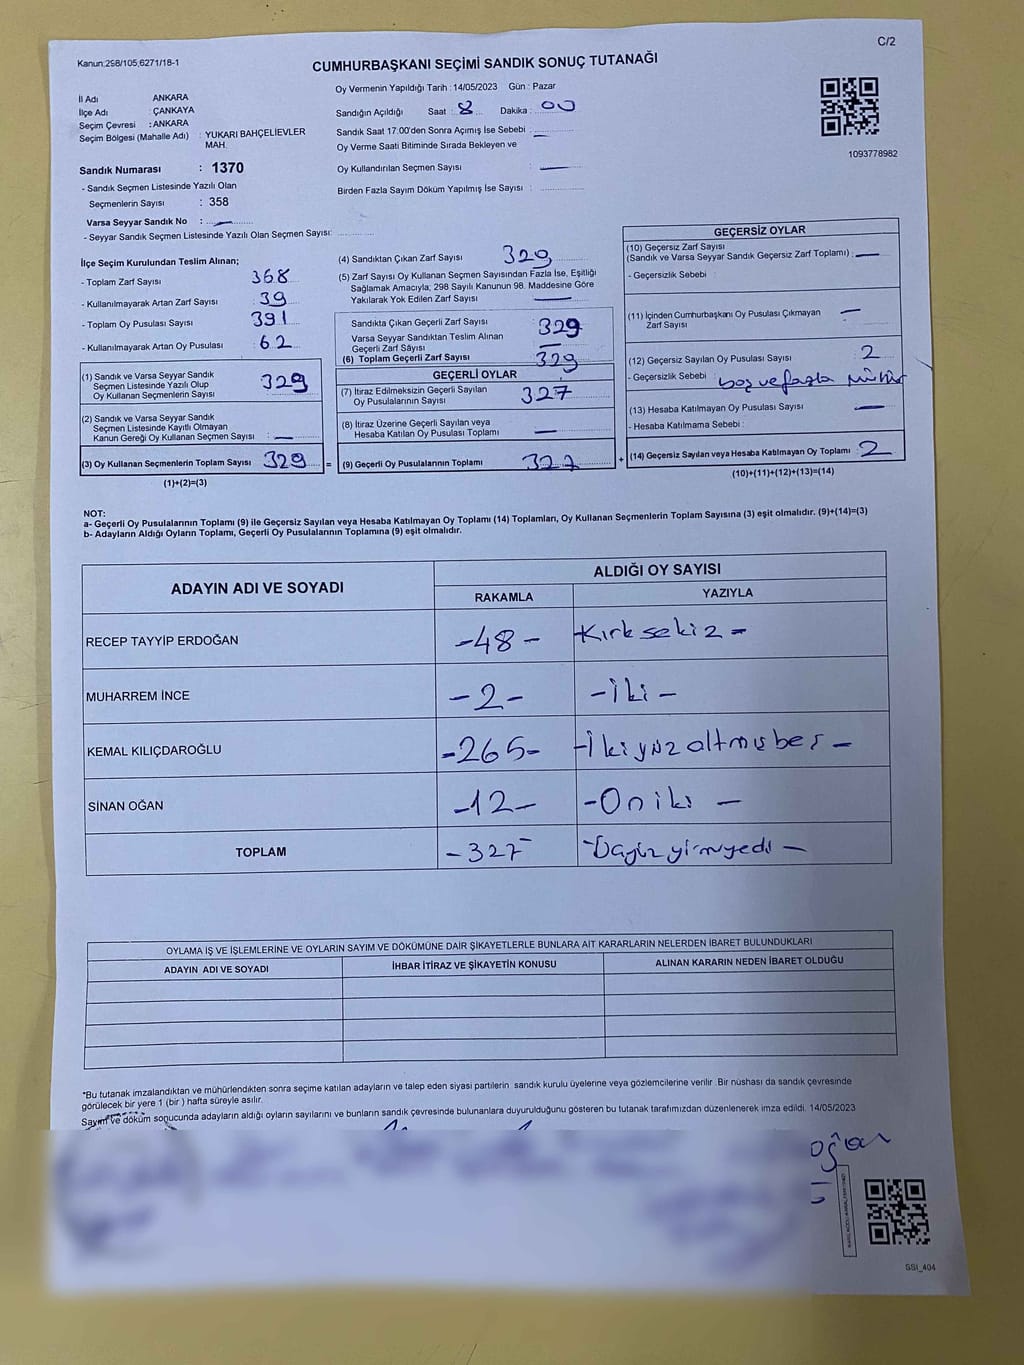 C/2
Kanun;298/105,6271/18-1
CUMHURBAŞKANI SEÇİMİ SANDIK SONUÇ TUTANAĞI
Oy Vermenin Yapıldığı Tarih : 14/05/2023 Gün : Pazar
İl Adı ANKARA
İlçe Adı : ÇANKAYA
Seçim Çevresi : ANKARA
Seçim Bölgesi (Mahalle Adı) : YUKARI BAHÇELİEVLER MAH.
Sandığın Açıldığı Saat : 8 Dakika : 00
Sandık Saat 17.00'den Sonra Açımış İse Sebebi : —
Oy Verme Saati Bitiminde Sırada Bekleyen ve
Oy Kullandırılan Seçmen Sayısı : —
Birden Fazla Sayım Döküm Yapılmış İse Sayısı :
1093778982
Sandık Numarası : 1370
- Sandık Seçmen Listesinde Yazılı Olan
Seçmenlerin Sayısı : 358
Varsa Seyyar Sandık No : —
- Seyyar Sandık Seçmen Listesinde Yazılı Olan Seçmen Sayısı:
İlçe Seçim Kurulundan Teslim Alınan;
- Toplam Zarf Sayısı 368
- Kullanılmayarak Artan Zarf Sayısı 39
- Toplam Oy Pusulası Sayısı 391
- Kullanılmayarak Artan Oy Pusulası 62
(1) Sandık ve Varsa Seyyar Sandık
Seçmen Listesinde Yazılı Olup
Oy Kullanan Seçmenlerin Sayısı 329
(2) Sandık ve Varsa Seyyar Sandık
Seçmen Listesinde Kayıtlı Olmayan
Kanun Gereği Oy Kullanan Seçmen Sayısı : —
(3) Oy Kullanan Seçmenlerin Toplam Sayısı 329
(1)+(2)=(3)
(4) Sandıktan Çıkan Zarf Sayısı 329
(5) Zarf Sayısı Oy Kullanan Seçmen Sayısından Fazla İse, Eşitliği
Sağlamak Amacıyla; 298 Sayılı Kanunun 98. Maddesine Göre
Yakılarak Yok Edilen Zarf Sayısı —
Sandıkta Çıkan Geçerli Zarf Sayısı 329
Varsa Seyyar Sandıktan Teslim Alınan
Geçerli Zarf Sayısı —
(6) Toplam Geçerli Zarf Sayısı 329
GEÇERLİ OYLAR
(7) İtiraz Edilmeksizin Geçerli Sayılan
Oy Pusulalarının Sayısı 327
(8) İtiraz Üzerine Geçerli Sayılan veya
Hesaba Katılan Oy Pusulası Toplamı —
= (9) Geçerli Oy Pusulalarının Toplamı 327
GEÇERSİZ OYLAR
(10) Geçersiz Zarf Sayısı
(Sandık ve Varsa Seyyar Sandık Geçersiz Zarf Toplamı) : —
- Geçersizlik Sebebi :
(11) İçinden Cumhurbaşkanı Oy Pusulası Çıkmayan
Zarf Sayısı —
(12) Geçersiz Sayılan Oy Pusulası Sayısı 2
- Geçersizlik Sebebi : boş ve fazla mühür
(13) Hesaba Katılmayan Oy Pusulası Sayısı —
- Hesaba Katılmama Sebebi :
+ (14) Geçersiz Sayılan veya Hesaba Katılmayan Oy Toplamı : 2
(10)+(11)+(12)+(13)=(14)
NOT:
a- Geçerli Oy Pusulalarının Toplamı (9) ile Geçersiz Sayılan veya Hesaba Katılmayan Oy Toplamı (14) Toplamları, Oy Kullanan Seçmenlerin Toplam Sayısına (3) eşit olmalıdır. (9)+(14)=(3)
b- Adayların Aldığı Oyların Toplamı, Geçerli Oy Pusulalarının Toplamına (9) eşit olmalıdır.
ADAYIN ADI VE SOYADI ALDIĞI OY SAYISI
RAKAMLA YAZIYLA
RECEP TAYYİP ERDOĞAN -48- -Kırksekiz-
MUHARREM İNCE -2- -İki-
KEMAL KILIÇDAROĞLU -265- -İkiyüzaltmışbeş-
SİNAN OĞAN -12- -Oniki-
TOPLAM -327-
OYLAMA İŞ VE İŞLEMLERİNE VE OYLARIN SAYIM VE DÖKÜMÜNE DAİR ŞİKAYETLERLE BUNLARA AİT KARARLARIN NELERDEN İBARET BULUNDUKLARI
ADAYIN ADI VE SOYADI İHBAR İTİRAZ VE ŞİKAYETİN KONUSU ALINAN KARARIN NEDEN İBARET OLDUĞU
*Bu tutanak imzalandıktan ve mühürlendikten sonra seçime katılan adayların ve talep eden siyasi partilerin sandık kurulu üyelerine veya gözlemcilerine verilir .Bir nüshası da sandık çevresinde
görülecek bir yere 1 (bir ) hafta süreyle asılır.
Sayım ve döküm sonucunda adayların aldığı oyların sayılarını ve bunların sandık çevresinde bulunanlara duyurulduğunu gösteren bu tutanak tarafımızdan düzenlenerek imza edildi. 14/05/2023
SSI_404